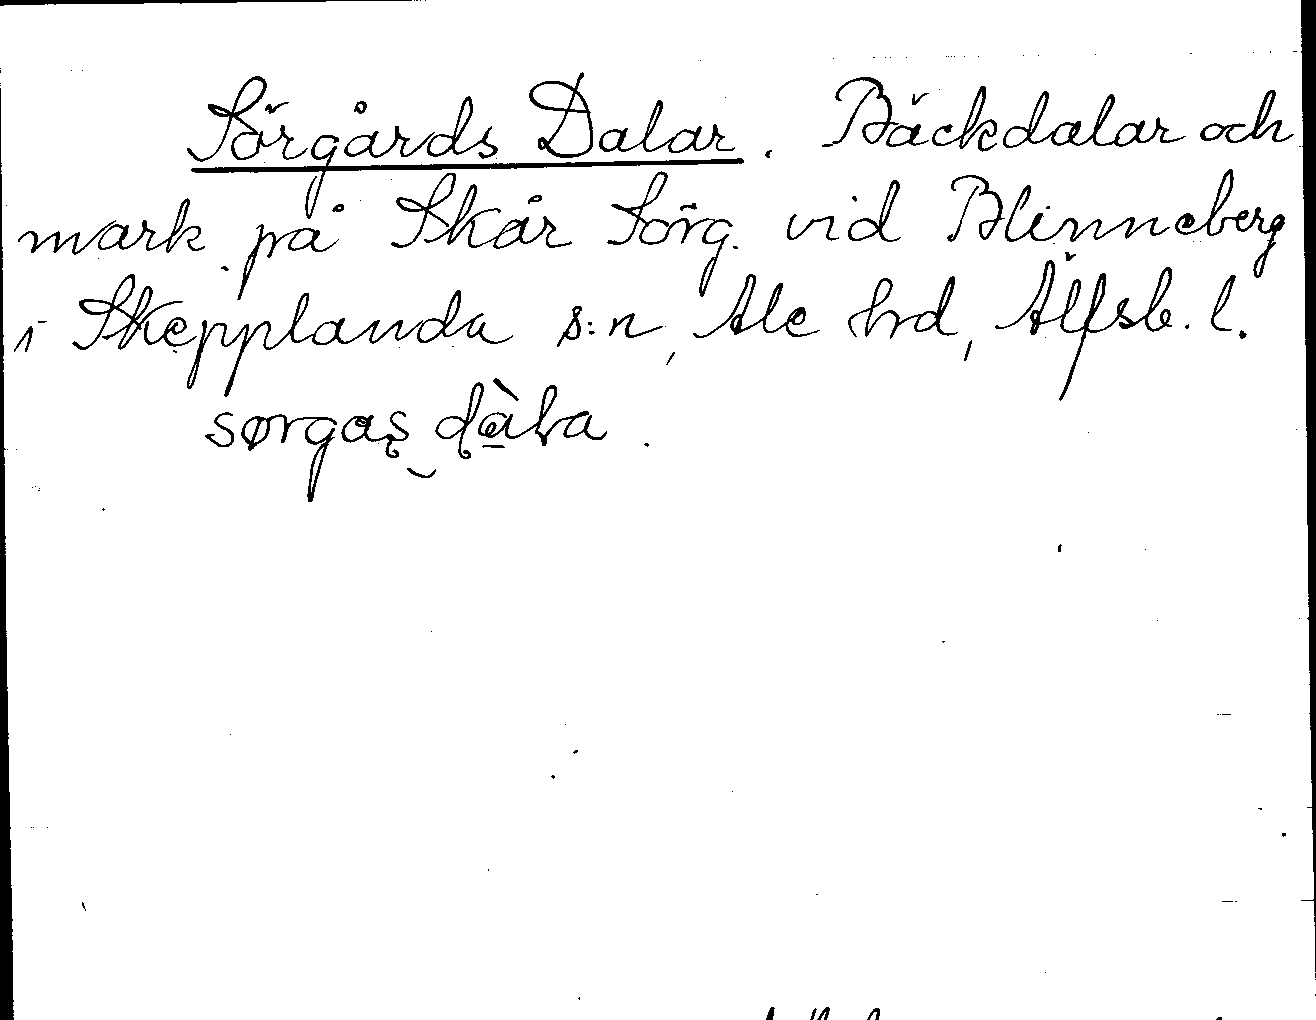 Sörgårds Dalar. Bäckdalar och
mark på Skår Sörg. vid Blinneberg
i Skepplanda s:n, Ale hrd, Älfsb. l.